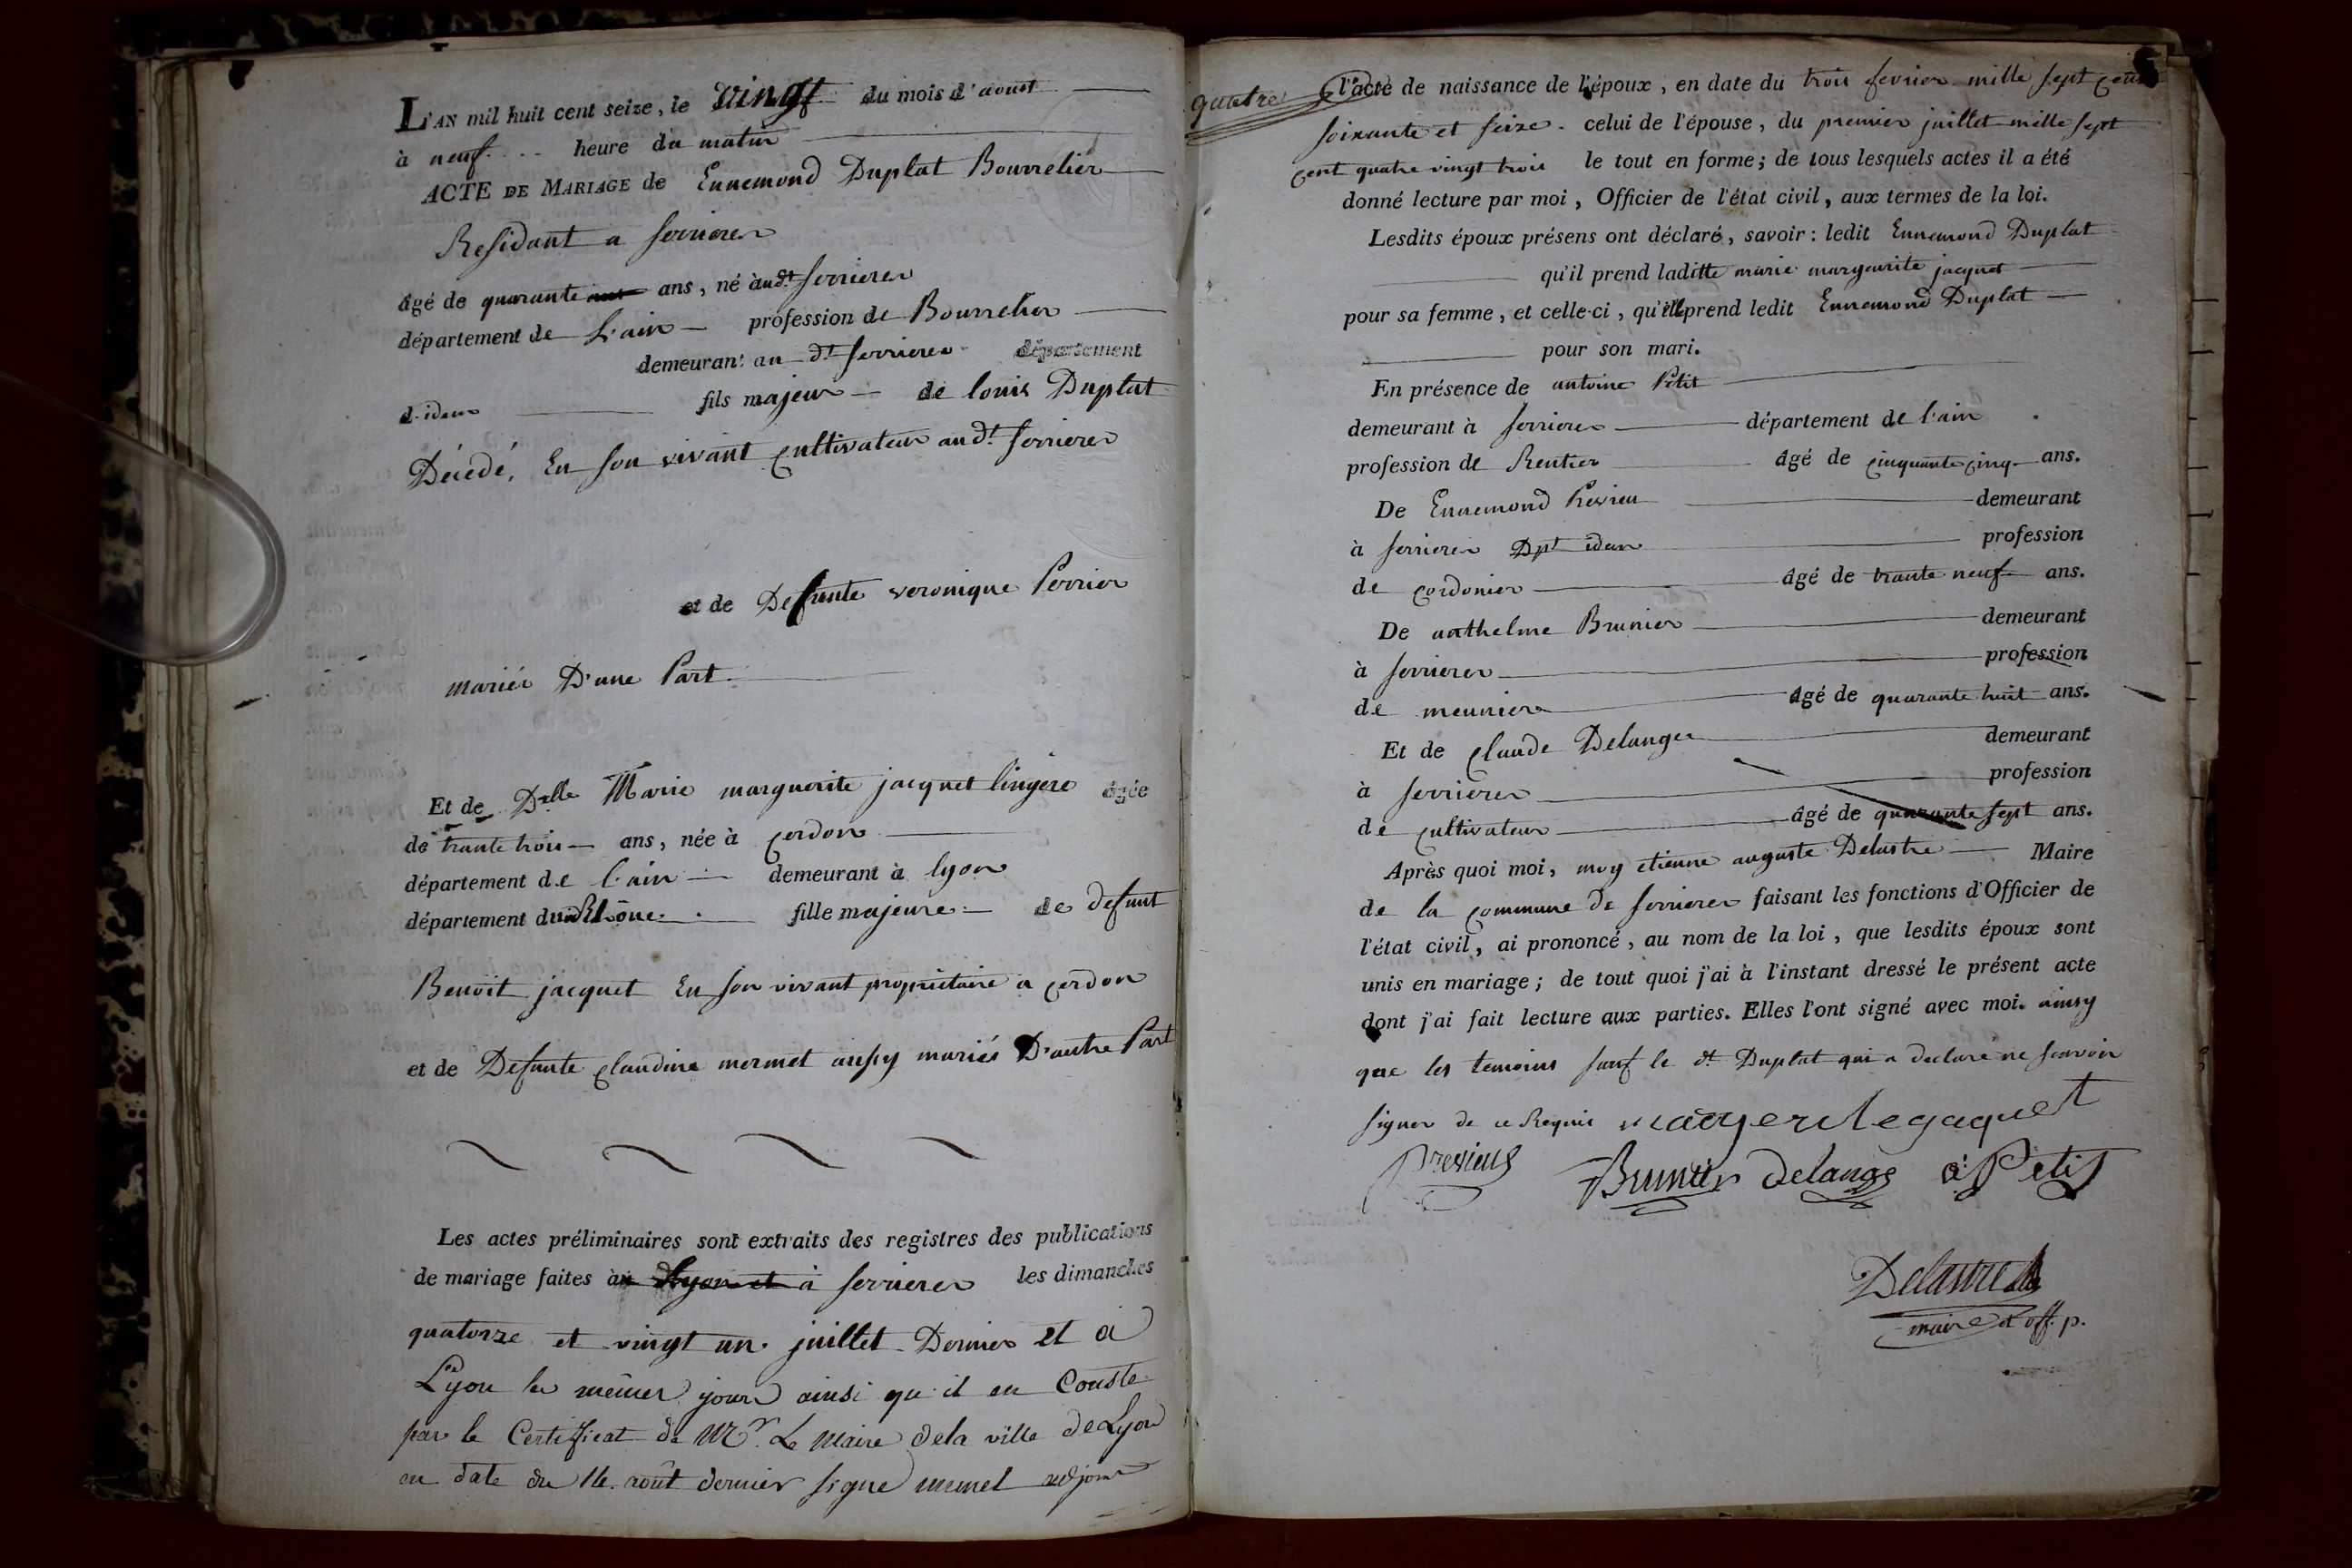 L'AN mil huit cent seize, le vingt du mois d'aoust
à neuf heure du matin
ACTE DE MARIAGE de Ennemond Duplat Bourrelier
Residant a serrieres
âgé de quarante ans, né audt serrieres
département de L'ain profession de Bourrelier
demeurant au dt serrieres département
d'idem fils majeur de louis Duplat
Décedé, En son vivant cultivateur audt serrieres
et de Defunte veronique Perrier
mariés D'une Part
Et de Dlle Marie marguerite jacquet lingere âgée
de trante trois ans, née à cordon
département de l'ain demeurant à lyon
département du Rhône fille majeure de defunt
Benoit jacquet En son vivant propriétaire a cordon
et de Defunte claudine mermet aussy mariés D'autre Part
Les actes préliminaires sont extraits des registres des publications
de mariage faites à Lyon et à serrieres les dimanches
quatorze et vingt un juillet Dernier et à
Lyon les mêmes jours ainsi qu'il en Conste
par le Certificat de Mr. Le Maire dela ville de Lyon
en date du 14 août dernier signé adjoint
quatre l'acte de naissance de l'époux, en date du trois fevrier mille sept cent
soixante et seize. celui de l'épouse, du premier juillet mille sept
cent quatre vingt trois le tout en forme; de tous lesquels actes il a été
donné lecture par moi, Officier de l'état civil, aux termes de la loi.
Lesdits époux présens ont déclaré, savoir: ledit Ennemond Duplat
qu'il prend laditte marie marguerite jacquet
pour sa femme, et celle-ci, qu'elle prend ledit Ennemond Duplat
pour son mari.
En présence de antoine Petit
demeurant à serrieres département de l'ain
profession de Rentier âgé de cinquante cinq ans.
De Ennemond Previeu demeurant
à serrieres Dpt idem profession
de cordonier âgé de trante neuf ans.
De anthelme Brunier demeurant
à serrieres profession
de meunier âgé de quarante huit ans.
Et de claude Delange demeurant
à serrieres profession
de cultivateur âgé de quarante sept ans.
Après quoi moi, moy etienne auguste Delastre Maire
de la commune de serrieres faisant les fonctions d'Officier de
l'état civil, ai prononcé, au nom de la loi, que lesdits époux sont
unis en mariage; de tout quoi j'ai à l'instant dressé le présent acte
dont j'ai fait lecture aux parties. Elles l'ont signé avec moi. ainsy
que les temoins sauf le dt Duplat qui a declaré ne scavoir
signer de ce Requis
Previeus Brunier delange a: Petit
Delastre
maire et off. p.